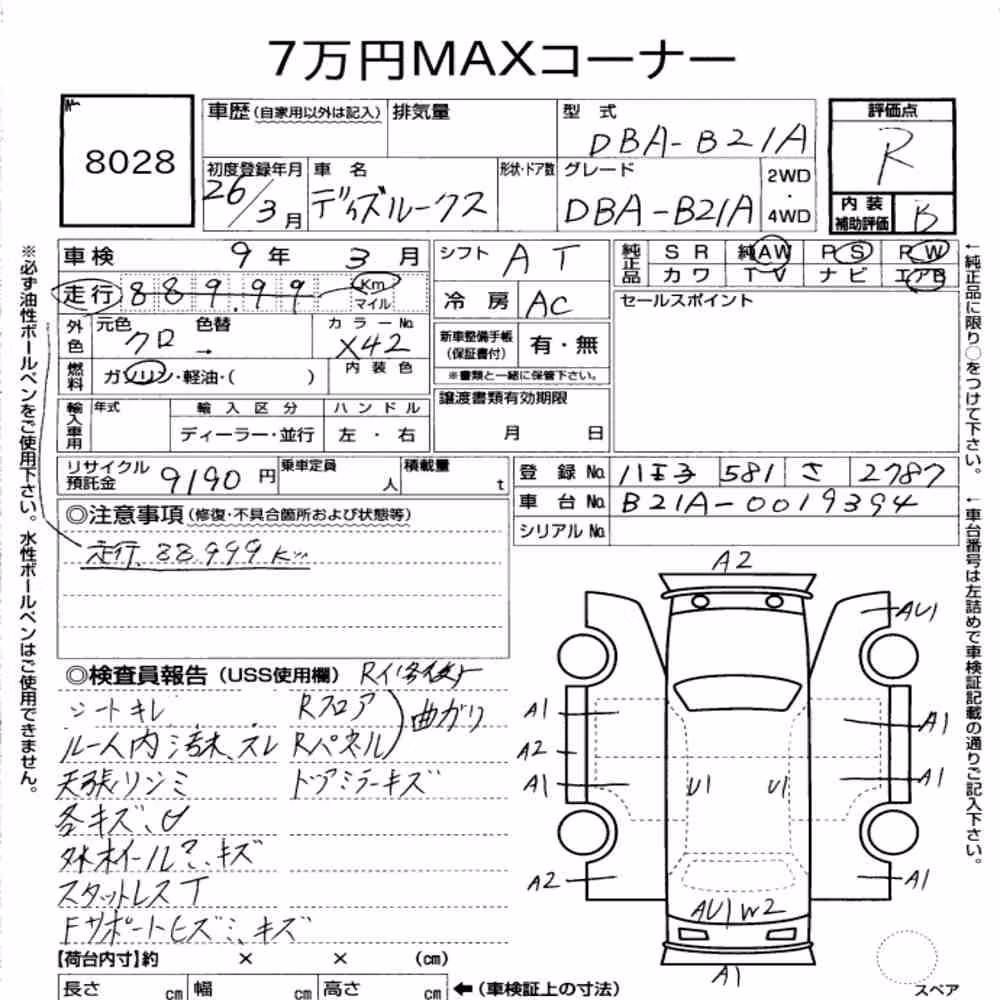 7万円MAXコーナー
8028
車歴(自家用以外は記入) 排気量 型式 DBA-B21A 評価点 R
初度登録年月 26/3月 車名 デイズルークス 形状・ドア数 グレード DBA-B21A 2WD・4WD 内装補助評価 B
車検 9年 3月 シフト AT 純正品 SR 純AW PS PW
カワ TV ナビ エアB
走行 88999 Km マイル 冷房 AC セールスポイント
外色 元色 クロ 色替 → カラーNo. X42 新車整備手帳(保証書付) 有・無
燃料 ガソリン・軽油・( ) 内装色 ※書類と一緒に保管下さい。
輸入車用 年式 輸入区分 ハンドル 譲渡書類有効期限
ディーラー・並行 左・右 月 日
リサイクル預託金 9190円 乗車定員 人 積載量 t 登録No. 八王子 581 さ 2787
車台No. B21A-0019394
◎注意事項(修復・不具合箇所および状態等) シリアルNo.
走行 88.999Km
◎検査員報告(USS使用欄)
シートキレ Rフロア
曲ガリ
Rパネル
ドアミラーキズ
各キズ、
スタットレスT
【荷台内寸】約 × × (cm)
長さ cm 幅 cm 高さ cm ←(車検証上の寸法)
A2
AU1
A1
A1
A2
A1
A1
U1 U1
A2
A1
AU1 W2
A1
スペア
※必ず油性ボールペンをご使用下さい。水性ボールペンはご使用できません。
←純正品に限り○をつけて下さい。
←車台番号は左詰めで車検証記載の通りご記入下さい。